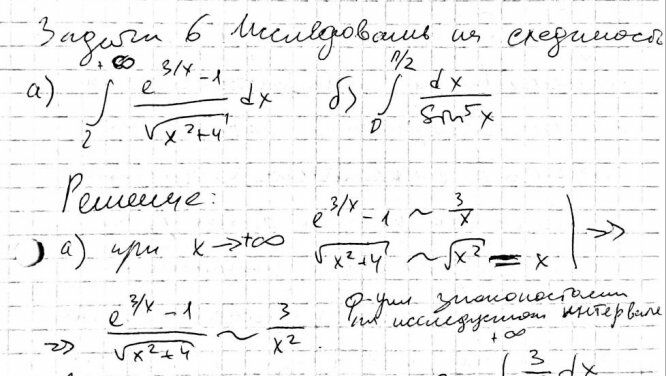 Задача 6 Исследовать на сходимость
а) ∫₂^{+∞} (e^{3/x} - 1)/√(x²+4) dx б) ∫₀^{π/2} dx/sin⁵x
Решение:
а) при x → +∞ e^{3/x} - 1 ~ 3/x
√(x²+4) ~ √x² = x | =>
=> (e^{3/x} - 1)/√(x²+4) ~ 3/x². ф-ция знакопостоянна
на исследуемом интервале
+∞
∫ 3 dx